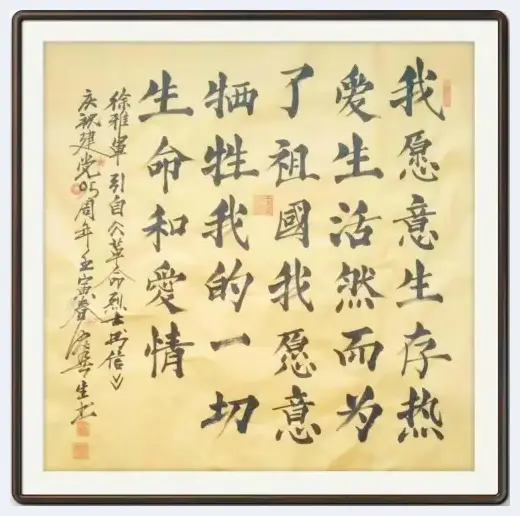 我愿意生存热
愛生活然而为
了祖國我愿意
牺牲我的一切
生命和愛情
徐雅軍 引自《革命烈士书信》
庆祝建党05周年壬寅春生书